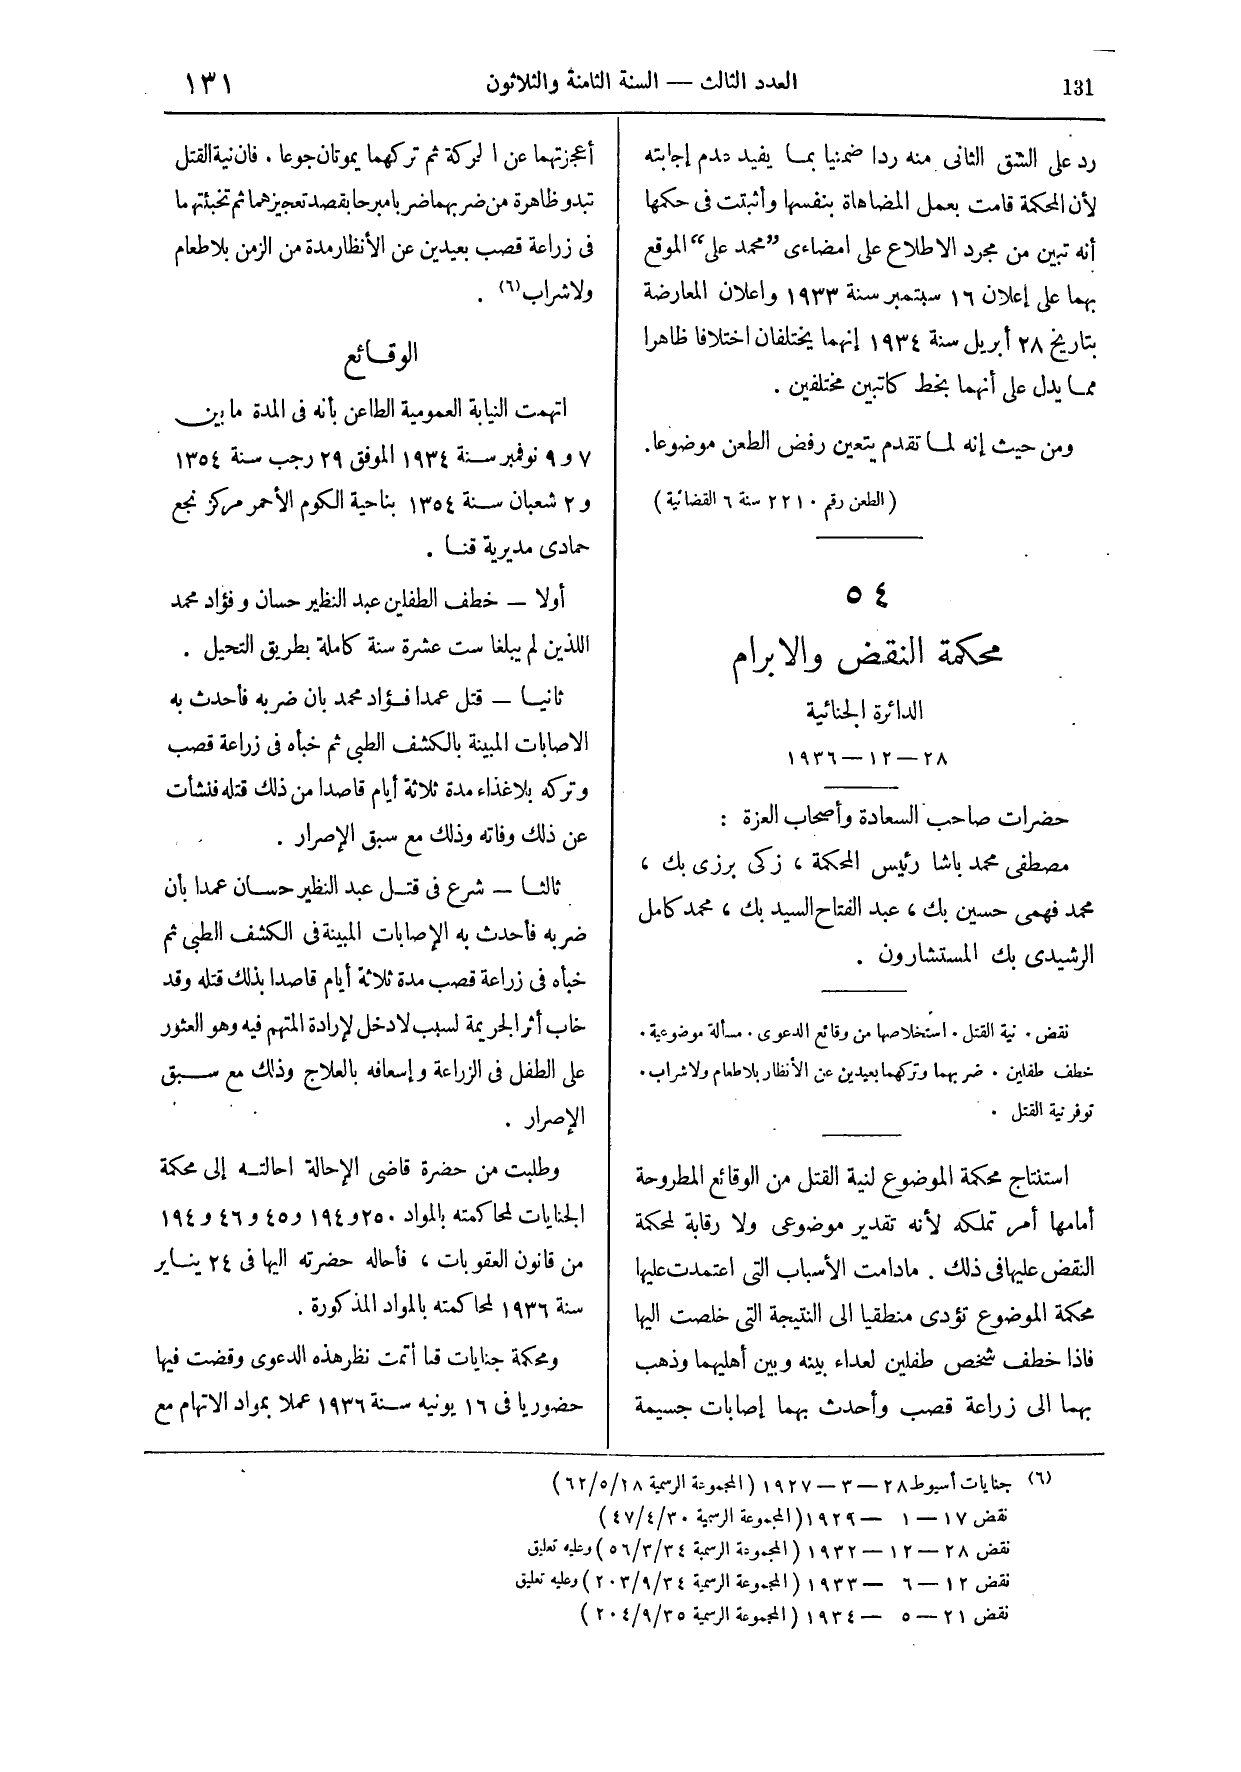 131
العدد الثالث — السنة الثامنة والثلاثون
١٣١
رد على الشق الثانى منه ردا ضمنيا بما يفيد عدم إجابته
لأن المحكمة قامت بعمل المضاهاة بنفسها وأثبتت فى حكمها
أنه تبين من مجرد الاطلاع على امضاءى "محمد على" الموقع
بهما على إعلان ١٦ سبتمبر سنة ١٩٣٣ واعلان المعارضة
بتاريخ ٢٨ أبريل سنة ١٩٣٤ إنهما يختلفان اختلافا ظاهرا
مما يدل على أنهما بخط كاتبين مختلفين .
ومن حيث إنه لما تقدم يتعين رفض الطعن موضوعا.
( الطعن رقم ٢٢١٠ سنة ٦ القضائية )
٥٤
محكمة النقض والابرام
الدائرة الجنائية
٢٨ — ١٢ — ١٩٣٦
حضرات صاحب السعادة وأصحاب العزة :
مصطفى محمد باشا رئيس المحكمة ، زكى برزى بك ،
محمد فهمى حسين بك ، عبد الفتاح السيد بك ، محمد كامل
الرشيدى بك المستشارون .
نقض . نية القتل . استخلاصها من وقائع الدعوى . مسألة موضوعية .
خطف طفلين . ضربهما وتركهما بعيدين عن الأنظار بلا طعام ولا شراب .
توفر نية القتل .
استنتاج محكمة الموضوع لنية القتل من الوقائع المطروحة
أمامها أمر تملكه لأنه تقدير موضوعى ولا رقابة لمحكمة
النقض عليها فى ذلك . مادامت الأسباب التى اعتمدت عليها
محكمة الموضوع تؤدى منطقيا الى النتيجة التى خلصت اليها
فاذا خطف شخص طفلين لعداء بينه وبين أهليهما وذهب
بهما الى زراعة قصب وأحدث بهما إصابات جسيمة
أعجزتهما عن الحركة ثم تركهما يموتان جوعا . فان نية القتل
تبدو ظاهرة من ضربهما ضربا مبرحا بقصد تعجيزهما ثم تخبئتهما
فى زراعة قصب بعيدين عن الأنظار مدة من الزمن بلا طعام
ولا شراب (٦) .
الوقائع
اتهمت النيابة العمومية الطاعن بأنه فى المدة ما بين
٧ و ٩ نوفمبر سنة ١٩٣٤ الموفق ٢٩ رجب سنة ١٣٥٤
و ٢ شعبان سنة ١٣٥٤ بناحية الكوم الأحمر مركز نجع
حمادى مديرية قنا .
أولا — خطف الطفلين عبد النظير حسان وفؤاد محمد
اللذين لم يبلغا ست عشرة سنة كاملة بطريق التحيل .
ثانيا — قتل عمدا فؤاد محمد بان ضربه فأحدث به
الاصابات المبينة بالكشف الطبى ثم خبأه فى زراعة قصب
وتركه بلا غذاء مدة ثلاثة أيام قاصدا من ذلك قتله فنشأت
عن ذلك وفاته وذلك مع سبق الإصرار .
ثالثا — شرع فى قتل عبد النظير حسان عمدا بأن
ضربه فأحدث به الإصابات المبينة فى الكشف الطبى ثم
خبأه فى زراعة قصب مدة ثلاثة أيام قاصدا بذلك قتله وقد
خاب أثر الجريمة لسبب لا دخل لإرادة المتهم فيه وهو العثور
على الطفل فى الزراعة وإسعافه بالعلاج وذلك مع سبق
الإصرار .
وطلبت من حضرة قاضى الإحالة احالته إلى محكمة
الجنايات لمحاكمته بالمواد ٢٥٠ و ١٩٤ و ٤٥ و ٤٦ و ١٩٤
من قانون العقوبات ، فأحاله حضرته اليها فى ٢٤ يناير
سنة ١٩٣٦ لمحاكمته بالمواد المذكورة .
ومحكمة جنايات قنا أتمت نظر هذه الدعوى وقضت فيها
حضوريا فى ١٦ يونيه سنة ١٩٣٦ عملا بمواد الاتهام مع
(٦) جنايات أسيوط ٢٨ — ٣ — ١٩٢٧ ( المجموعة الرسمية ٦٢/٥/٢٨ )
نقض ١٧ — ١ — ١٩٢٩ ( المجموعة الرسمية ٤٧/٤/٣٠ )
نقض ٢٨ — ١٢ — ١٩٣٢ ( المجموعة الرسمية ٥٦/٣/٣٤ ) وعليه تعليق
نقض ١٢ — ٦ — ١٩٣٣ ( المجموعة الرسمية ٢٠٣/٩/٣٤ ) وعليه تعليق
نقض ٢١ — ٥ — ١٩٣٤ ( المجموعة الرسمية ٢٠٤/٩/٣٥ )